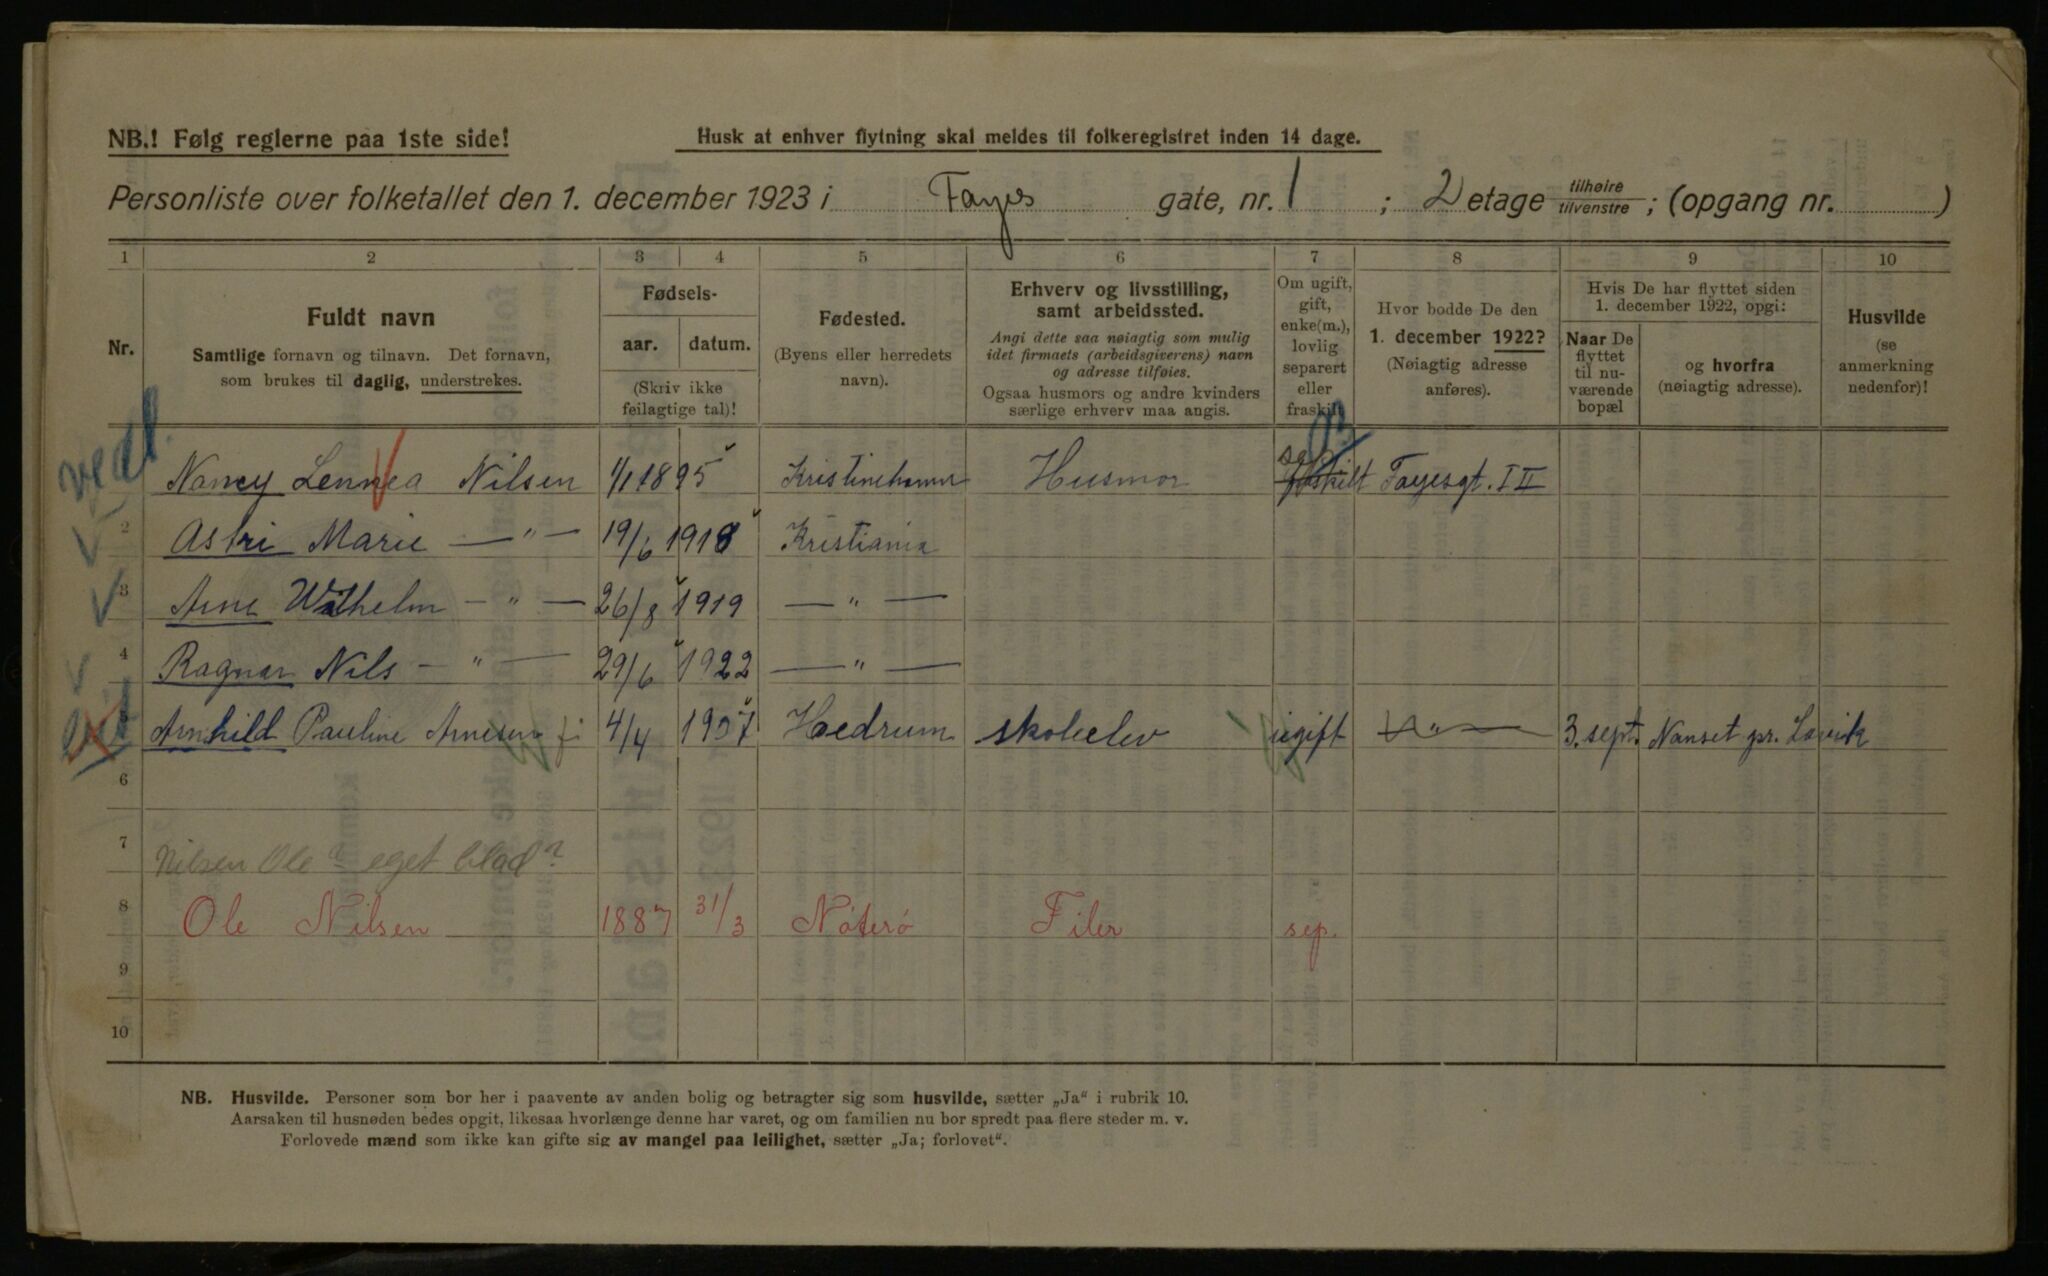 NB.! Følg reglerne paa 1ste side!
Husk at enhver flytning skal meldes til folkeregistret inden 14 dage.
Personliste over folketallet den 1. december 1923 i Fayes gate, nr. 1; 2 etage tilhøire tilvenstre; (opgang nr. )
1 2 3 4 5 6 7 8 9 10
Nr.
Fuldt navn
Samtlige fornavn og tilnavn. Det fornavn,
som brukes til daglig, understrekes.
Fødsels-
aar. datum.
(Skriv ikke
feilagtige tal)!
Fødested.
(Byens eller herredets
navn).
Erhverv og livsstilling,
samt arbeidssted.
Angi dette saa nøiagtig som mulig
idet firmaets (arbeidsgiverens) navn
og adresse tilføies.
Ogsaa husmors og andre kvinders
særlige erhverv maa angis.
Om ugift,
gift,
enke(m.),
lovlig
separert
eller
fraskilt
Hvor bodde De den
1. december 1922?
(Nøiagtig adresse
anføres).
Hvis De har flyttet siden
1. december 1922, opgi:
Naar De
flyttet
til nu-
værende
bopæl
og hvorfra
(nøiagtig adresse).
Husvilde
(se
anmerkning
nedenfor)!
Nancy Lennea Nilsen 1/1 1895 Kristinehamn Husmor Fayesgt. I II
2 Astri Marie — " — 19/6 1918 Kristiania
3 Arne Wilhelm — " — 26/8 1919 — " —
4 Ragnar Nils — " — 29/6 1922 — " —
5 Arnhild Pauline Arnesen 4/4 1907 Hedrum skoleelev ugift — " — 3. sept. Nanset pr. Larvik
6
7 Nilsen Ole? eget blad?
8 Ole Nilsen 1887 31/3 Nøterø Filer sep.
9
10
NB. Husvilde. Personer som bor her i paavente av anden bolig og betragter sig som husvilde, sætter „Ja“ i rubrik 10.
Aarsaken til husnøden bedes opgit, likesaa hvorlænge denne har varet, og om familien nu bor spredt paa flere steder m. v.
Forlovede mænd som ikke kan gifte sig av mangel paa leilighet, sætter „Ja; forlovet“.